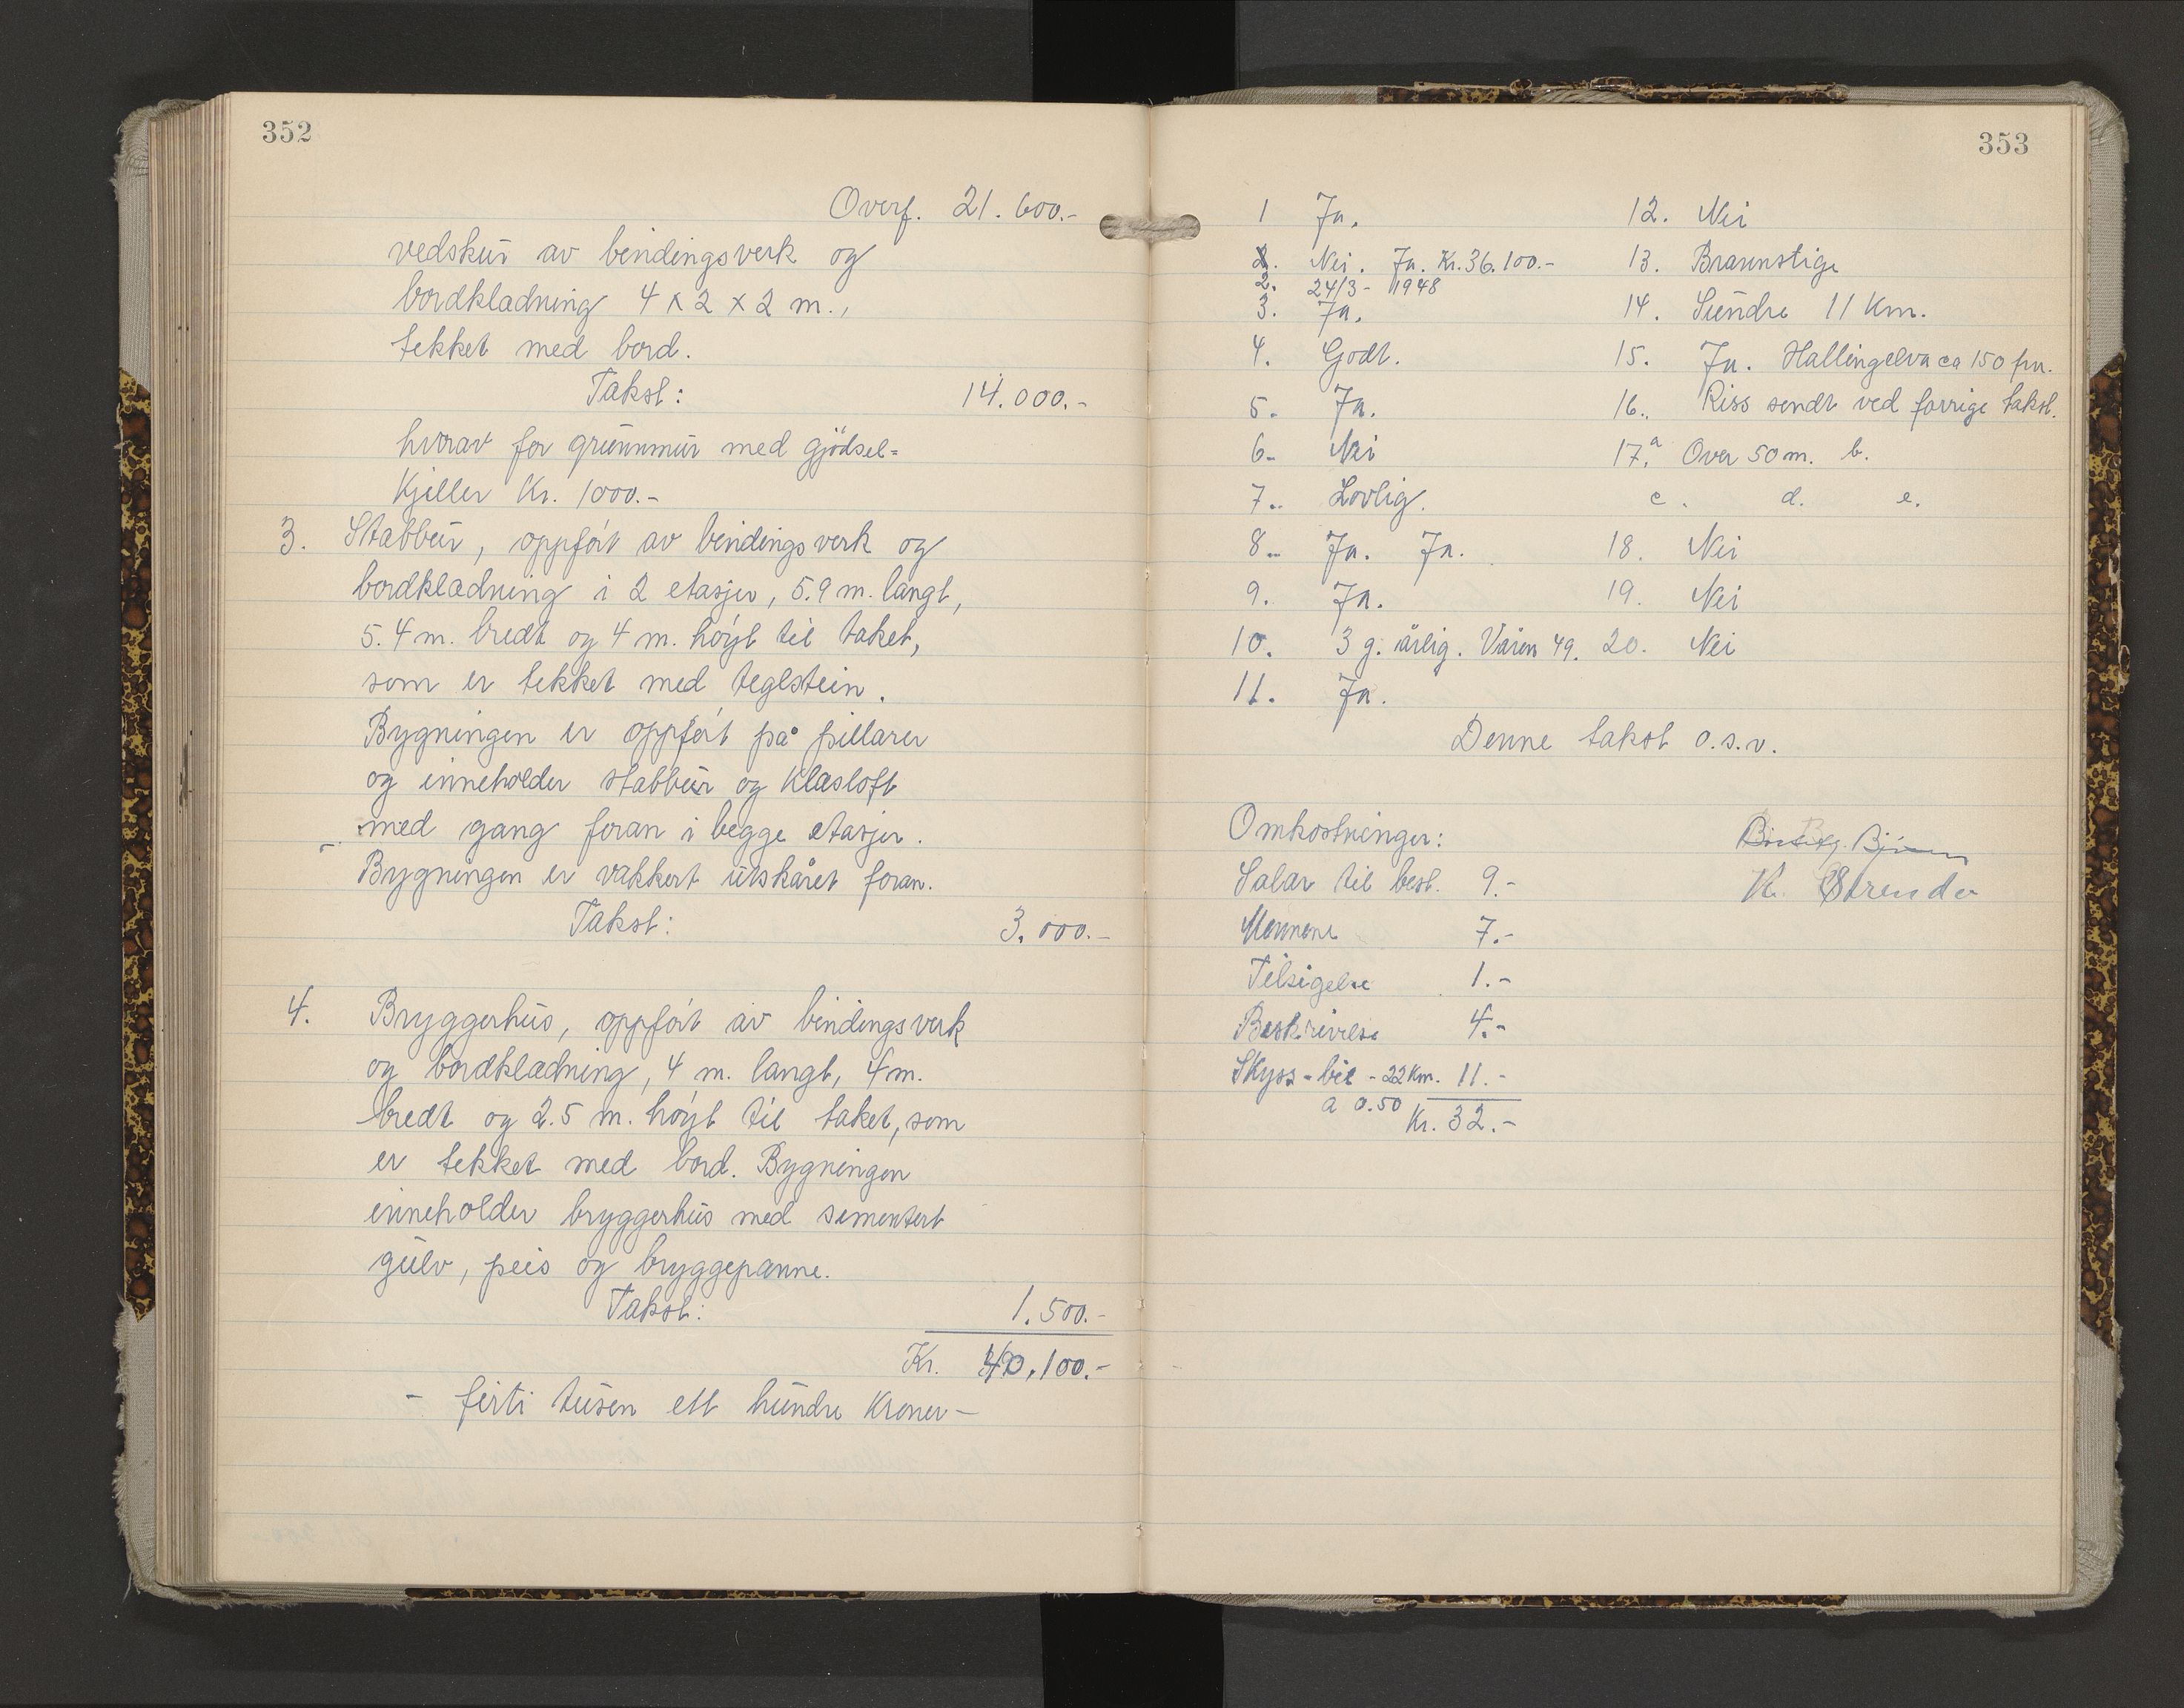 352
Overf. 21.600.-
vedskur av bindingsverk og
bordkladning 4 x 2 x 2 m.,
tekket med bord.
Takst: 14.000.-
hvorav for grunnmur med gjödsel=
kjeller Kr. 1000.-
3. Stabbur, oppfört av bindingsverk og
bordkledning i 2 etasjer, 5.9 m. langt,
5.4 m. bredt og 4 m. höyt til taket,
som er tekket med teglstein.
Bygningen er oppfört på pillarer
og inneholder stabbur og klesloft
med gang foran i begge etasjer.
Bygningen er vakkert utskåret foran.
Takst: 3.000.-
4. Bryggerhus, oppfört av bindingsverk
og bordkledning, 4 m. langt, 4 m.
bredt og 2.5 m. höyt til taket, som
er tekket med bord. Bygningen
inneholder bryggerhus med sementert
gulv, peis og bryggepanne.
Takst: 1.500.-
Kr. 40.100.-
- firti tusen ett hundre kroner -
353
1 Ja.
2. Nei. Ja. Kr. 36.100.-
2. 24/3 - 1948
3. Ja.
4. Godt.
5. Ja.
6. Nei
7. Lovlig.
8. Ja. Ja.
9. Ja.
10. 3 g. årlig. Våren 49.
11. Ja.
12. Nei
13. Brannstige
14. Sundre 11 km.
15. Ja. Hallingelva ca 150 fra.
16. Riss sendt ved forrige takst.
17.a Over 50 m. b.
c. d. e.
18. Nei
19. Nei
20. Nei
Denne takst o.s.v.
Omkostninger:
Salar til best. 9.-
Mennene 7.-
Tilsigelse 1.-
Beskrivelse 4.-
Skyss - bil - 22 km. 11.-
a 0.50
Kr. 32.-
K. Strando